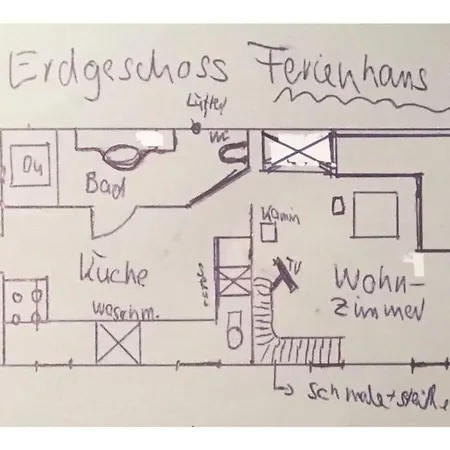 Erdgeschoss Ferienhaus
Lüfter
WC
Du
Bad
Kamin
Küche
TV
Wohn-
zimmer
Waschm.
schmale + steile